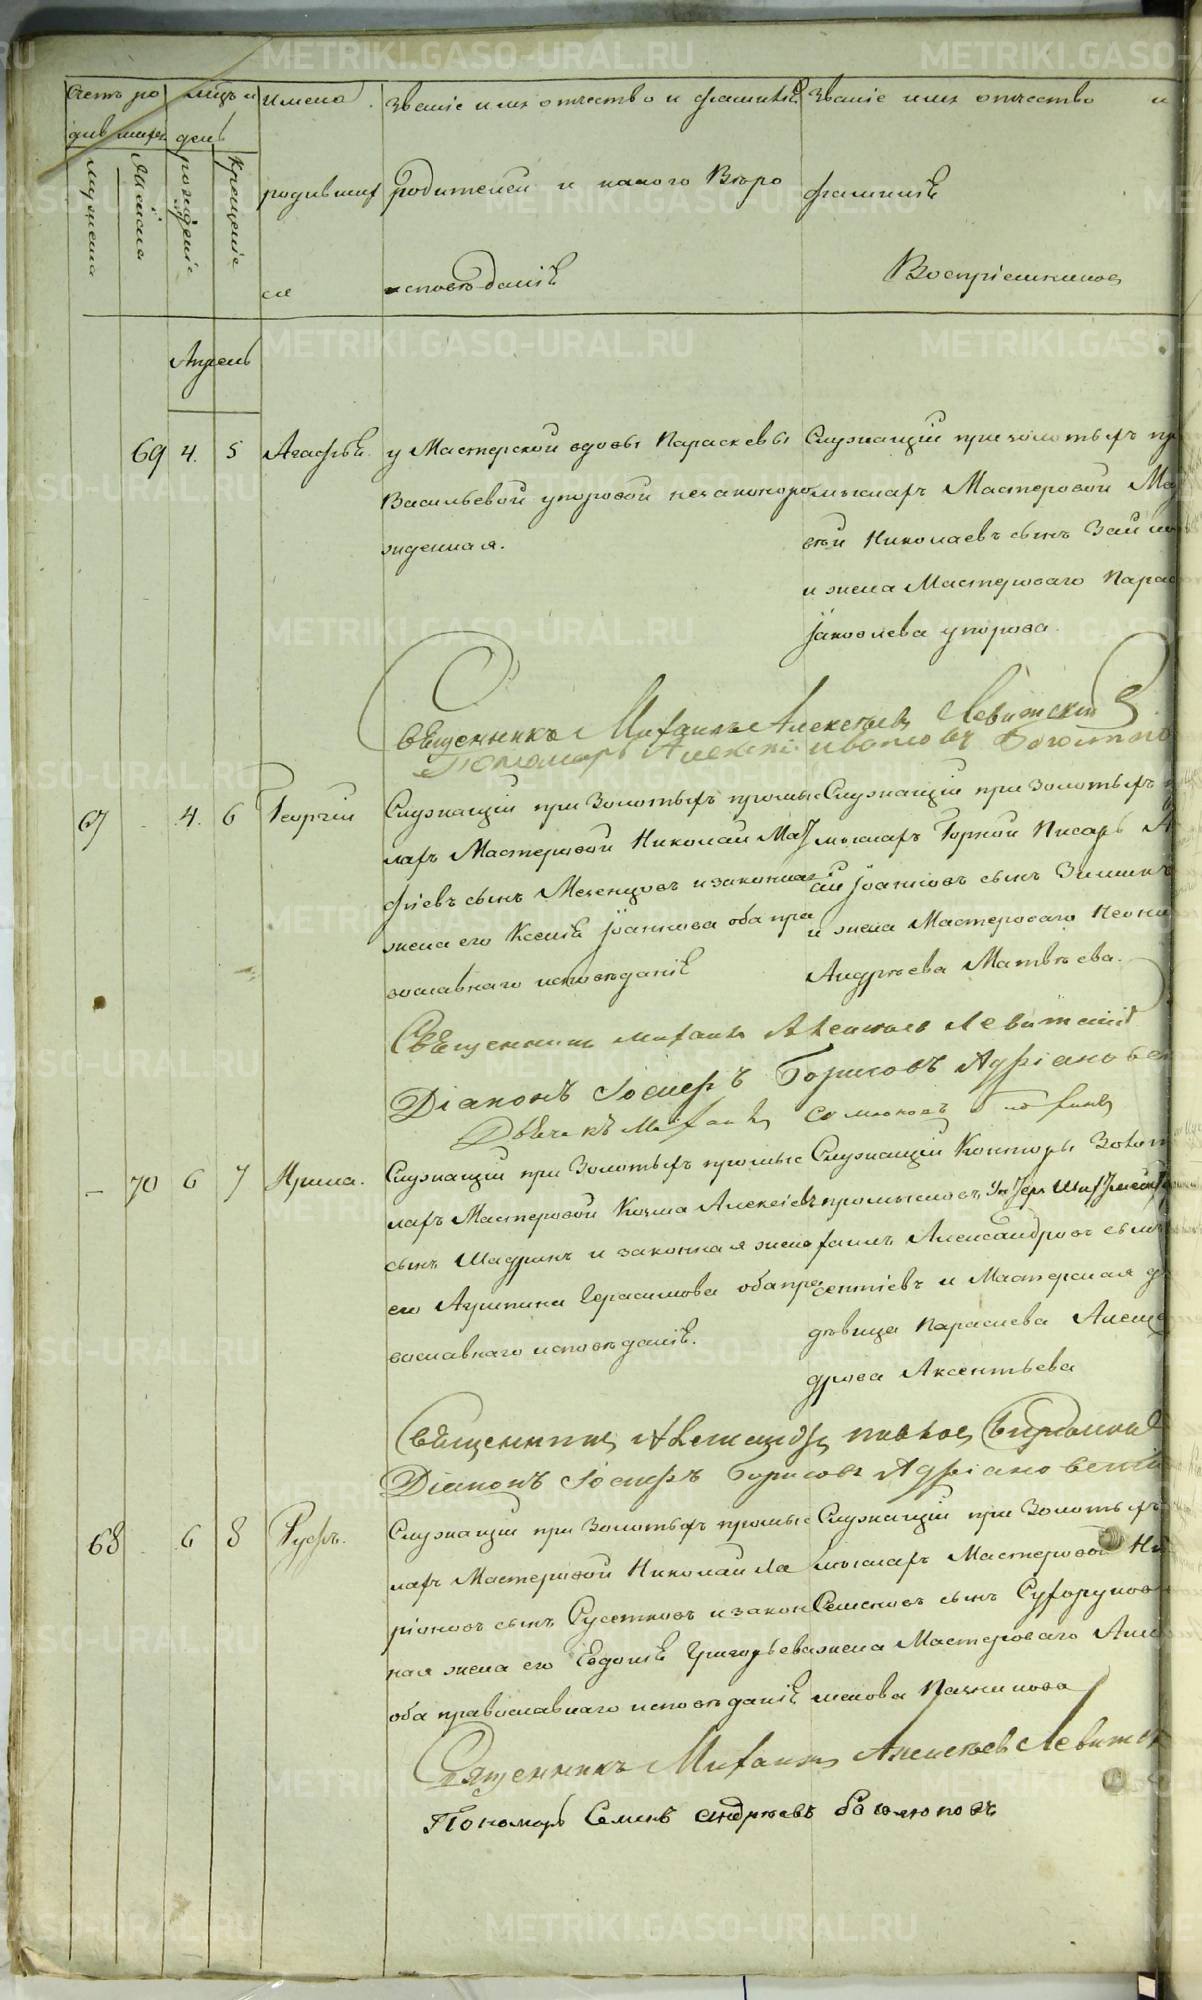 METRIKI.GASO-URAL.RU
Счетъ ро
дившихся
мужеска
женска
Мцъ и
день
рожденіе
крещеніе
Имена
родивших
ся
Званіе имя отчество и фамилія
родителей и какого Вѣро
исповѣданія
Званіе имя отчество и
фамилія
Воспріемниковъ
Апрель
69 4. 5 Агафья.
у Мастерской вдовы Параскевы
Васильевой упоровой незаконоро
жденная.
Служащій при золотыхъ пр
мыслахъ Мастеровой Ма
вѣй Николаевъ сынъ
и жена Мастероваго Парас
Јаковлева упорова.
Священникъ Михаилъ Алексѣевъ Левитскій
Пономарь Алексѣй Ивановъ
67 4. 6 Георгій
Служащій при Золотыхъ промыс
лахъ Мастеровой Николай Мат
фіевъ сынъ Мезенцовъ и законная
жена его Ксенія Јоаннова оба пра
вославнаго исповѣданія
Служащій при Золотыхъ п
мыслахъ Горной Писарь А
ей Јоанновъ сынъ Зиминъ
и жена Мастероваго Неони
Андрѣева Матвѣева.
Священникъ Михаилъ Алексѣевъ Левитскій
Діаконъ Іосифъ Борисовъ Адріановскі
Дьячекъ Михаилъ
– 70 6 7 Ирина.
Служащій при Золотыхъ промыс
лахъ Мастеровой Козма Алексіевъ
сынъ Шадринъ и законная жена
его Агрипина Герасимова оба пра
вославнаго исповѣданія.
Служащій Конторы Золот
промысловъ Унтеръ Шихтмейст
Александровъ сынъ
сентіевъ и Мастерская д
дѣвица Параскева Алекса
дрова Аксентьева
Священникъ Александръ
Діаконъ Іосифъ Борисовъ Адріановскі
68 6 8 Руфъ.
Служащій при Золотыхъ промыс
лахъ Мастеровой Николай Ла
ріоновъ сынъ Сусетковъ и закон
ная жена его Евдокія Григорьева
оба православнаго исповѣданія
Служащій при Золотыхъ
мыслахъ Мастеровой Ни
Семеновъ сынъ Суфоруков
жена Мастероваго
Священникъ Михаилъ Алексѣевъ Левитск
Пономарь Семенъ Андрѣевъ